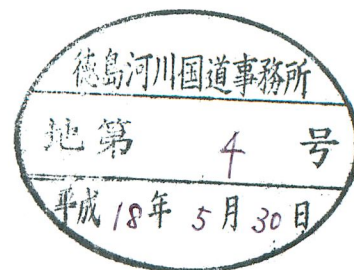 徳島河川国道事務所
地第 4 号
平成 18年 5月 30日